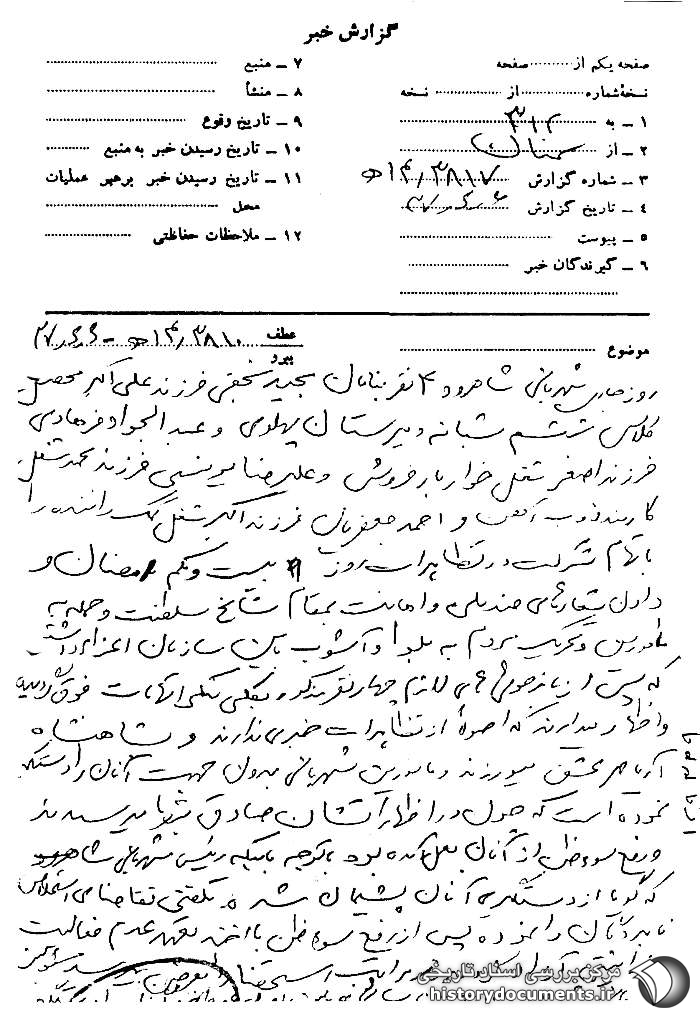 گزارش خبر
صفحه یکم از .......... صفحه
نسخه‌شماره .......... از .......... نسخه
۱ ـ به ۳۱۲
۲ ـ از سمنان
۳ ـ شماره گزارش ۳۸۱۷/ه۱۴
۴ ـ تاریخ گزارش
۵ ـ پیوست
۶ ـ گیرندگان خبر
۷ ـ منبع
۸ ـ منشأ
۹ ـ تاریخ وقوع
۱۰ ـ تاریخ رسیدن خبر به منبع
۱۱ ـ تاریخ رسیدن خبر برهبر عملیات
محل
۱۲ ـ ملاحظات حفاظتی
موضوع
عطف ۳۸۱۰/ه۱۴
پیرو
روز جاری شهربانی شاهرود ۴ نفر بنامان مجید نجفی فرزند علی اکبر محصل
کلاس ششم شبانه دبیرستان پهلوی و عبدالجواد فرهادی
فرزند اصغر شغل خواربار فروش و علیرضا یونسی فرزند محمد شغل
کارمند ذوب آهن و احمد جعفریان فرزند اکبر شغل کمک راننده را
باتهام شرکت در تظاهرات روز بیست و یکم رمضان و
دادن شعارهای ضد ملی و اهانت بمقام شامخ سلطنت و حمله به
مامورین و تحریک مردم به بلوا و آشوب باین سازمان اعزام داشته
که پس از بازجوئی های لازم چهار نفر مذکور بکلی منکر اتهامات فوق گردیده
و اظهار میدارند که اصولاً از تظاهرات خبری ندارند و به شاهنشاه
آریامهر عشق میورزند و مامورین شهربانی بدون جهت آنان را دستگیر
نموده است که چون در اظهاراتشان صادق بنظر میرسیدند
و رفع سوءظن از آنان بعمل آمده بود با توجه باینکه رئیس شهربانی شاهرود
که گویا از دستگیری آنان پشیمان شده تلفنی تقاضای استخلاص
نامبردگان را نموده پس از رفع سوءظن با اخذ تعهد عدم فعالیت
مرکز بررسی اسناد تاریخی
historydocuments.ir